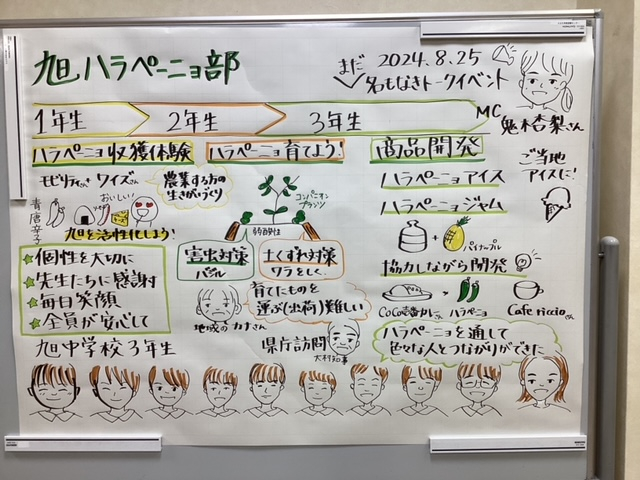 旭ハラペーニョ部
2024.8.25
まだ
名もなきトークイベント
MC
鬼木杏梨さん
1年生
2年生
3年生
ハラペーニョ収獲体験
ハラペーニョ育てよう!
商品開発
モビリティさん+ワイズさん
農業する方の
生きがいづくり
おいしい!
青唐辛子
旭を活性化しよう!
個性を大切に
先生たちに感謝
毎日笑顔
全員が安心して
旭中学校3年生
コンパニオン
プランツ
害虫対策
バジル
土くずれ対策
ワラをしく。
地域のカナさん
育てたものを
運ぶ(出荷)難しい
県庁訪問
大村知事
ハラペーニョアイス
ハラペーニョジャム
ご当地
アイスに!
パイナップル
協力しながら開発
CoCo壱番カレーさん
ハラペーニョ
Cafe riccioさん
ハラペーニョを通して
色々な人とつながりができた